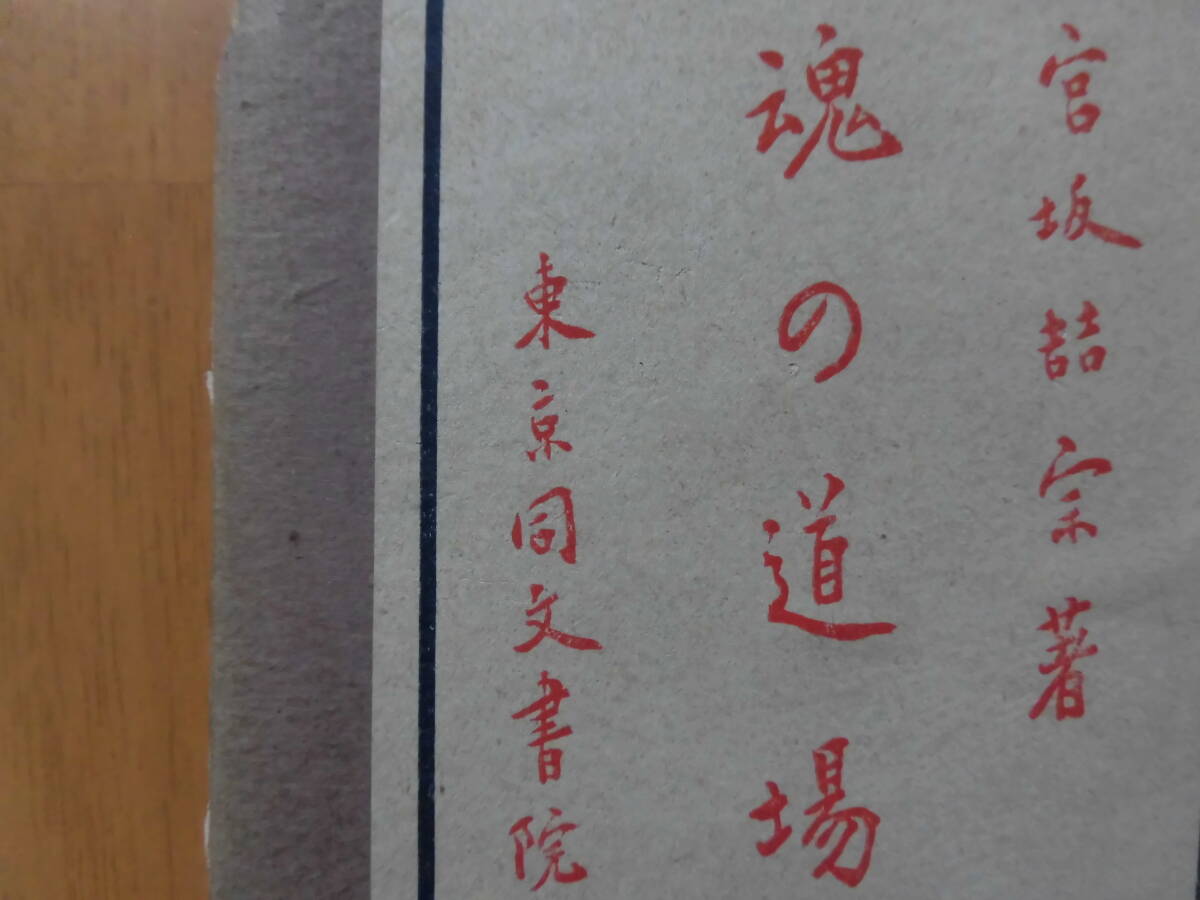 宮坂喆宗著
魂の道場
東京同文書院